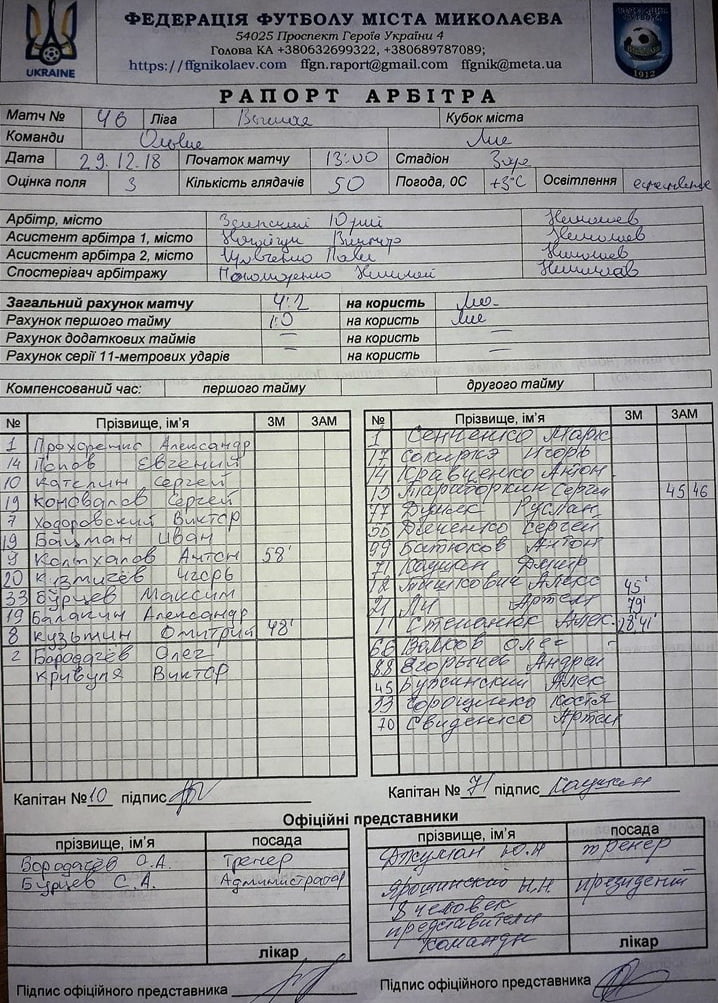 UKRAINE
ФЕДЕРАЦІЯ ФУТБОЛУ МІСТА МИКОЛАЄВА
54025 Проспект Героїв України 4
Голова КА +380632699322, +380689787089;
https://ffgnikolaev.com ffgn.raport@gmail.com ffgnik@meta.ua
1912
РАПОРТ АРБІТРА
Матч № 46 Ліга Высшая Кубок міста
Команди
Дата 29.12.18 Початок матчу 13:00 Стадіон Заря
Оцінка поля 3 Кількість глядачів 50 Погода, 0С +3°С Освітлення
Арбітр, місто Юрий Николаев
Асистент арбітра 1, місто Виктор Николаев
Асистент арбітра 2, місто Николаев
Спостерігач арбітражу Пономаренко Николай Николаев
Загальний рахунок матчу 4:2 на користь
Рахунок першого тайму 1:0 на користь
Рахунок додаткових таймів — на користь —
Рахунок серії 11-метрових ударів — на користь —
Компенсований час: першого тайму другого тайму
№ Прізвище, ім'я ЗМ ЗАМ
1 Александр
14 Попов Евгений
10 Сергей
19 Коновалов Сергей
7 Ходоровский Виктор
19 Бацман Иван
9 Колыхалов Антон 58'
20 Игорь
33 Бурцев Максим
19 Балагин Александр
8 Кузьмин Дмитрий 48'
2 Бородачёв Олег
Кривуля Виктор
№ Прізвище, ім'я ЗМ ЗАМ
1 Сенченко Марк
17 Игорь
14 Кравценко Антон
15 Тараторкин Сергей 45 46
77 Руслан
55 Сергей
99 Батюков Антон
71
12 Тишкович Алекс 45'
21 Ли Артем 79'
11 Степанюк Алек. 28' 41'
66 Волков Олег
88 Андрей
45 Алек
33 Костя
70 Свиденко Артем
Капітан № 10 підпис
Капітан № 71 підпис
Офіційні представники
прізвище, ім'я посада
Бородачёв О.А. Тренер
Бурцев С.А. Администратор
лікар
прізвище, ім'я посада
Джуман Ю.Н тренер
Ярошинский Н.Н. президент
8 человек
представители
команди
лікар
Підпис офіційного представника
Підпис офіційного представника